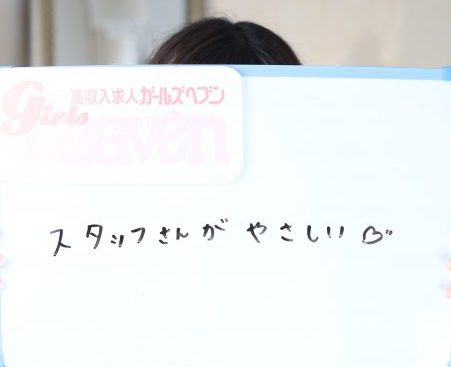 高収入求人ガールズヘブン
Girls
heaven
スタッフさんが やさしい♡